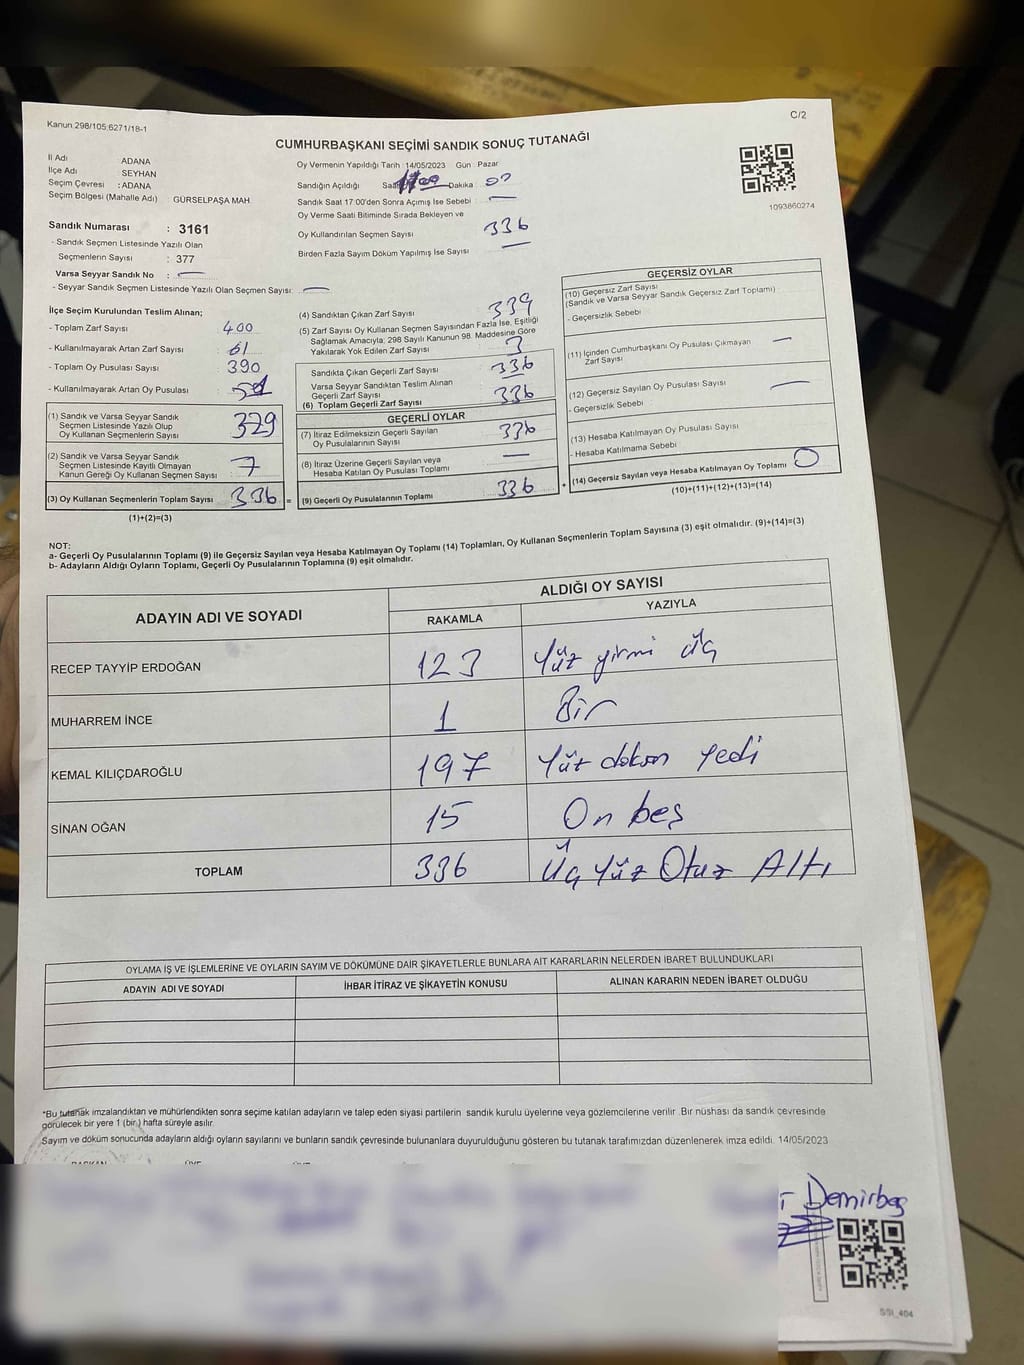 Kanun 298/105;6271/18-1
C/2
CUMHURBAŞKANI SEÇİMİ SANDIK SONUÇ TUTANAĞI
İl Adı ADANA
İlçe Adı SEYHAN
Seçim Çevresi : ADANA
Seçim Bölgesi (Mahalle Adı) : GÜRSELPAŞA MAH
Sandık Numarası : 3161
- Sandık Seçmen Listesinde Yazılı Olan
Seçmenlerin Sayısı : 377
Varsa Seyyar Sandık No : —
- Seyyar Sandık Seçmen Listesinde Yazılı Olan Seçmen Sayısı: —
Oy Vermenin Yapıldığı Tarih : 14/05/2023 Gün : Pazar
Sandığın Açıldığı Saat Dakika :
Sandık Saat 17:00'den Sonra Açımış İse Sebebi : —
Oy Verme Saati Bitiminde Sırada Bekleyen ve
Oy Kullandırılan Seçmen Sayısı 336
Birden Fazla Sayım Döküm Yapılmış İse Sayısı —
1093860274
İlçe Seçim Kurulundan Teslim Alınan;
- Toplam Zarf Sayısı : 400
- Kullanılmayarak Artan Zarf Sayısı : 61
- Toplam Oy Pusulası Sayısı : 390
- Kullanılmayarak Artan Oy Pusulası :
(1) Sandık ve Varsa Seyyar Sandık
Seçmen Listesinde Yazılı Olup
Oy Kullanan Seçmenlerin Sayısı 329
(2) Sandık ve Varsa Seyyar Sandık
Seçmen Listesinde Kayıtlı Olmayan
Kanun Gereği Oy Kullanan Seçmen Sayısı 7
(3) Oy Kullanan Seçmenlerin Toplam Sayısı 336 =
(1)+(2)=(3)
(4) Sandıktan Çıkan Zarf Sayısı 339
(5) Zarf Sayısı Oy Kullanan Seçmen Sayısından Fazla İse, Eşitliği
Sağlamak Amacıyla; 298 Sayılı Kanunun 98. Maddesine Göre
Yakılarak Yok Edilen Zarf Sayısı 3
Sandıkta Çıkan Geçerli Zarf Sayısı 336
Varsa Seyyar Sandıktan Teslim Alınan
Geçerli Zarf Sayısı —
(6) Toplam Geçerli Zarf Sayısı 336
GEÇERLİ OYLAR
(7) İtiraz Edilmeksizin Geçerli Sayılan
Oy Pusulalarının Sayısı 336
(8) İtiraz Üzerine Geçerli Sayılan veya
Hesaba Katılan Oy Pusulası Toplamı —
(9) Geçerli Oy Pusulalarının Toplamı 336 +
GEÇERSİZ OYLAR
(10) Geçersiz Zarf Sayısı
(Sandık ve Varsa Seyyar Sandık Geçersiz Zarf Toplamı)
- Geçersizlik Sebebi :
(11) İçinden Cumhurbaşkanı Oy Pusulası Çıkmayan
Zarf Sayısı —
(12) Geçersiz Sayılan Oy Pusulası Sayısı —
- Geçersizlik Sebebi :
(13) Hesaba Katılmayan Oy Pusulası Sayısı
- Hesaba Katılmama Sebebi :
(14) Geçersiz Sayılan veya Hesaba Katılmayan Oy Toplamı 0
(10)+(11)+(12)+(13)=(14)
NOT:
a- Geçerli Oy Pusulalarının Toplamı (9) ile Geçersiz Sayılan veya Hesaba Katılmayan Oy Toplamı (14) Toplamları, Oy Kullanan Seçmenlerin Toplam Sayısına (3) eşit olmalıdır. (9)+(14)=(3)
b- Adayların Aldığı Oyların Toplamı, Geçerli Oy Pusulalarının Toplamına (9) eşit olmalıdır.
ADAYIN ADI VE SOYADI ALDIĞI OY SAYISI
RAKAMLA YAZIYLA
RECEP TAYYİP ERDOĞAN 123 Yüz yirmi üç
MUHARREM İNCE 1 Bir
KEMAL KILIÇDAROĞLU 197 Yüz doksn Yedi
SİNAN OĞAN 15 On beş
TOPLAM 336 Üç Yüz Otuz Altı
OYLAMA İŞ VE İŞLEMLERİNE VE OYLARIN SAYIM VE DÖKÜMÜNE DAİR ŞİKAYETLERLE BUNLARA AİT KARARLARIN NELERDEN İBARET BULUNDUKLARI
ADAYIN ADI VE SOYADI İHBAR İTİRAZ VE ŞİKAYETİN KONUSU ALINAN KARARIN NEDEN İBARET OLDUĞU
*Bu tutanak imzalandıktan ve mühürlendikten sonra seçime katılan adayların ve talep eden siyasi partilerin sandık kurulu üyelerine veya gözlemcilerine verilir. Bir nüshası da sandık çevresinde
görülecek bir yere 1 (bir) hafta süreyle asılır.
Sayım ve döküm sonucunda adayların aldığı oyların sayılarını ve bunların sandık çevresinde bulunanlara duyurulduğunu gösteren bu tutanak tarafımızdan düzenlenerek imza edildi. 14/05/2023
Demirbeş
SSI_404